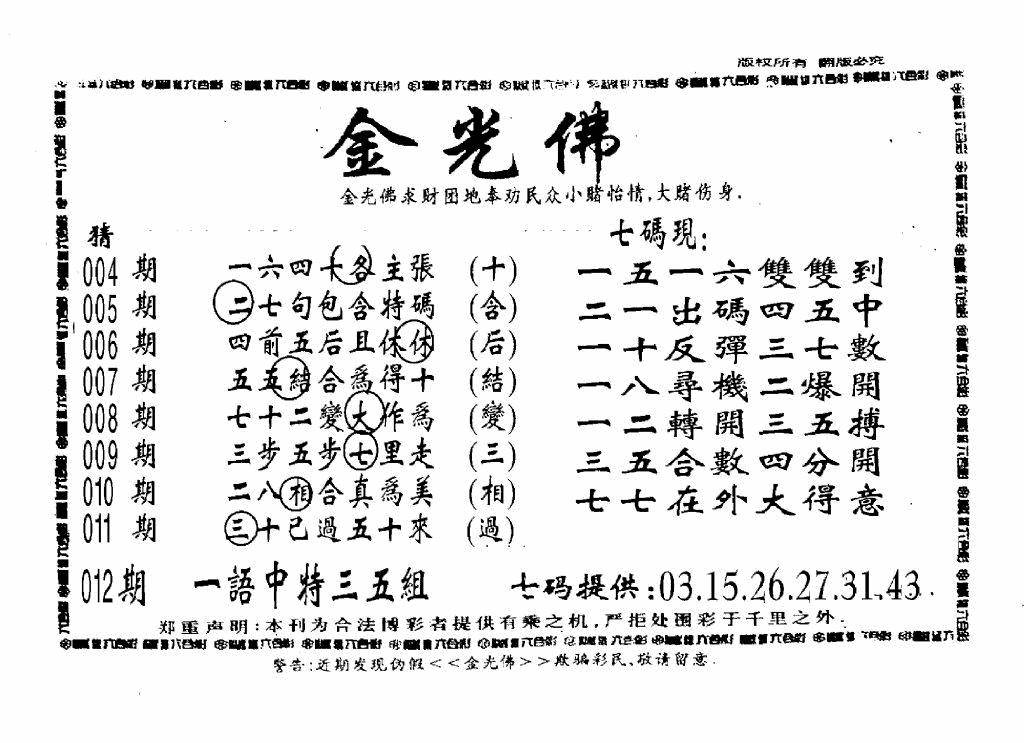 版权所有 翻版必究
金光佛
金光佛求财团地奉劝民众小赌怡情,大赌伤身.
猜 七碼現:
004期 一六四十各主張 (十) 一五一六雙雙到
005期 二七句包含特碼 (含) 二一出碼四五中
006期 四前五后且休休 (后) 一十反彈三七數
007期 五五結合爲得十 (結) 一八尋機二爆開
008期 七十二變大作爲 (變) 一二轉開三五搏
009期 三步五步七里走 (三) 三五合數四分開
010期 二八相合真爲美 (相) 七七在外大得意
011期 三十已過五十來 (過)
012期 一語中特三五組 七码提供:03.15.26.27.31.43
郑重声明:本刊为合法博彩者提供有乘之机,严拒处圈彩于千里之外.
警告:近期发现伪假<<金光佛>>欺骗彩民、敬请留意.